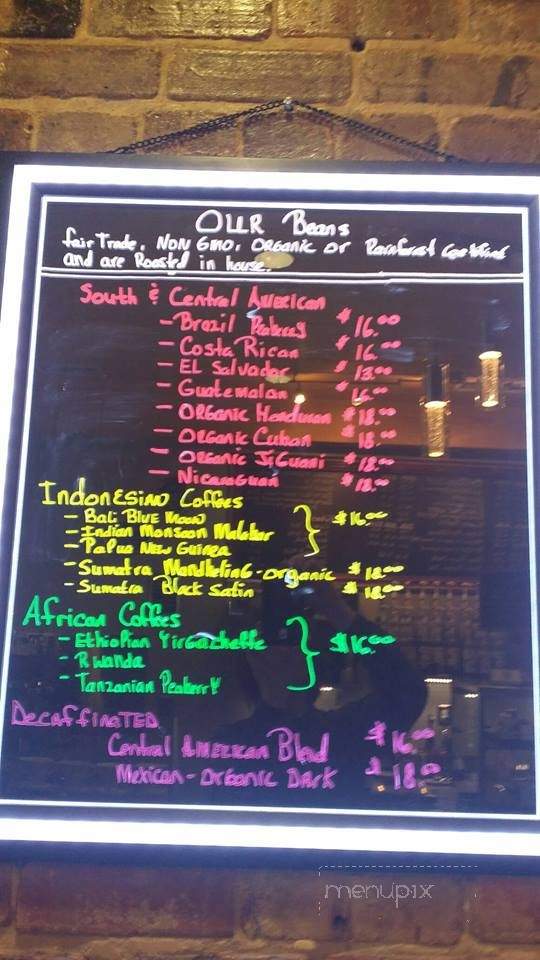 OUR Beans
fair Trade, NON GMO, ORGANIC or Rainforest
and are Roasted in house.
South & Central American
- Brazil Peaberry $16.00
- Costa Rican $16.00
- EL Salvador $13.00
- Guatemalan $16.00
- ORGANIC Honduran $18.00
- ORGANIC Cuban $18.00
- ORGANIC $18.00
- Nicaraguan $18.00
Indonesian Coffees
- Bali BLUE Moon
- Indian Monsoon Malabar } $16.00
- Papua New Guinea
- Sumatra Mandheling - organic $18.00
- Sumatra Black Satin $18.00
African Coffees
- Ethiopian Yirgacheffe
- Rwanda } $16.00
- Tanzanian Peaberry
Decaffinated
Central American Blend $16.00
Mexican - Organic Dark $18.00
menupix